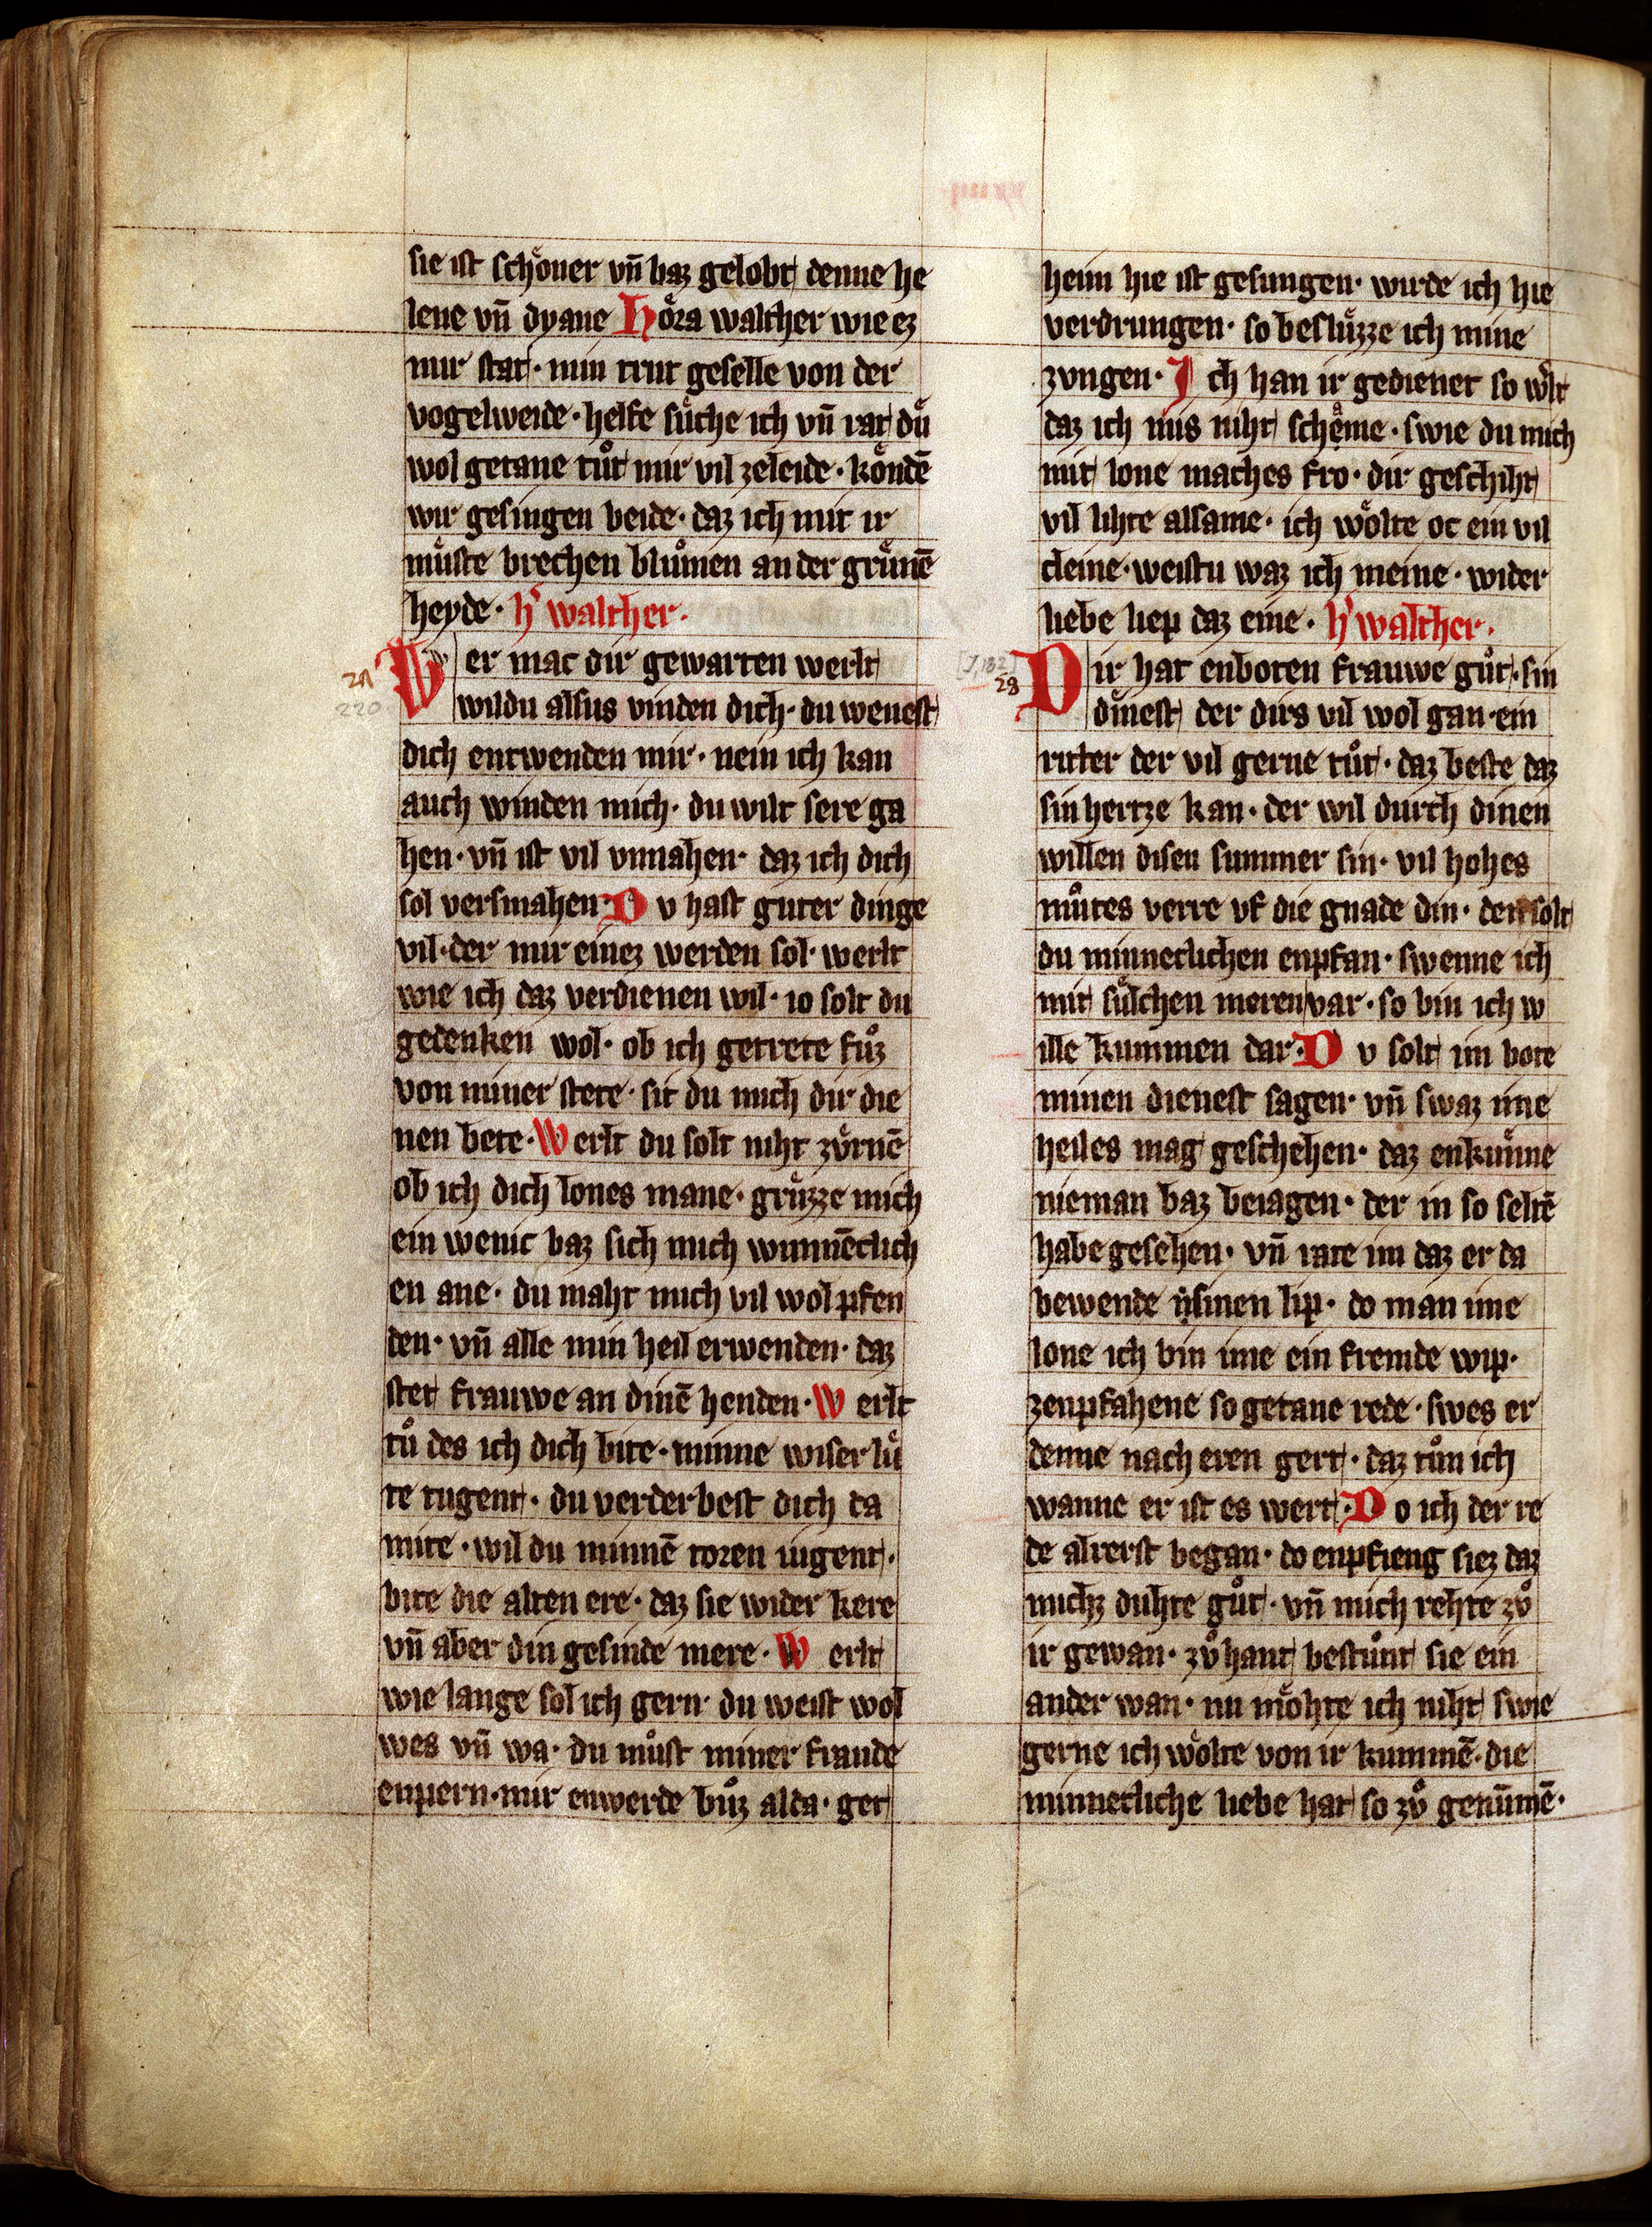 sie ist schoͤner vn̄ baz gelobt denne he
lene vn̄ dyane Hoͤra walther wie ez
mir stat· min trut geselle von der
vogelweide· helfe suͤche ich vn̄ rat duͤ
wol getane tuͦt mir vil zeleide· koͤndē
wir gesingen beide· daz ich mit ir
muͤste brechen bluͦmen an der gruͤnē
heyde· h' walther·
Wer mac dir gewarten werlt
wildu alsus vinden dich· du wenest
dich entwenden mir· nein ich kan
auch winden mich· du wilt sere ga
hen· vn̄ ist vil vnnahen· daz ich dich
sol versmahen· Dv hast guter dinge
vil· der mir einez werden sol· werlt
wie ich daz verdienen wil· io solt du
gedenken wol· ob ich getrete fuͦz
von miner stete· sit du mich dir die
nen bete· Werlt du solt niht zvͤrnē
ob ich dich lones mane· gruͤzze mich
ein wenic baz sich mich winnēclich
en ane· du maht mich vil wol pfen
den· vn̄ alle min heil erwenden· daz
stet frauwe an dinē henden· Werlt
tuͦ des ich dich bite· minne wiser luͤ
te tugent· du verderbest dich da
mite· wil du minnē toren iugent·
bite die alten ere· daz sie wider kere
vn̄ aber din gesinde mere· Werlt
wie lange sol ich gern· du weist wol
wes vn̄ wa· du muͦst miner fraude
enpern· mir enwerde buͦz alda· get
heim hie ist gesungen· wurde ich hie
verdrungen· so besluͤzze ich mine
zvngen· Ich han ir gedienet so w'lt
daz ich mis niht scheͣme· swie du mich
mit lone maches fro· dir geschiht
vil lihte alsame· ich woͤlte ot ein vil
cleine· weistu waz ich meine· wider
liebe liep daz eine· h' walther·
28
Dir hat enboten frauwe guͦt· sin
dinest der dirs vil wol gan· ein
ritter der vil gerne tuͦt· daz beste daz
sin hertze kan· der wil durch dinen
willen disen summer sin· vil hohes
muͦtes verre vf die gnade din· den solt
du minneclichen enpfan· swenne ich
mit suͤlchen meren var· so bin ich w
ille kummen dar· Dv solt im bote
minen dienest sagen· vn̄ swaz ime
heiles mag geschehen· daz enkuͤnne
nieman baz beiagen· der in so seltē
habe gesehen· vn̄ rate im daz er da
bewende sinen lip· do man ime
lone ich bin ime ein fremde wip·
zenpfahene so getane rede· swes er
denne nach eren gert· daz tuͦn ich
wanne er ist es wert· Do ich der re
de alrerst began· do enpfieng siez daz
michz duhte guͦt· vn̄ mich rehte zvͦ
ir gewan· zvͦ hant bestuͦnt sie ein
ander wan· nu moͤhte ich niht swie
gerne ich woͤlte von ir kummē· die
minnecliche liebe hat so zvͦ genūmē·